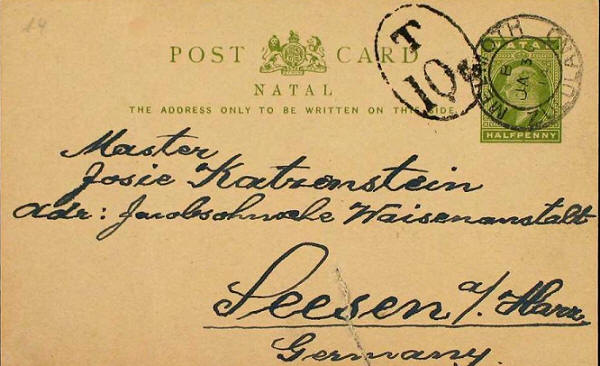 14
POST CARD
NATAL
THE ADDRESS ONLY TO BE WRITTEN ON THIS SIDE.
T
10c
NATAL
HALFPENNY
MELMOTH ZULULAND
JA 13
Master
Josie Katzenstein
Adr: Jacobsohnsche Waisenanstalt
Seesen a/. Harz
Germany.